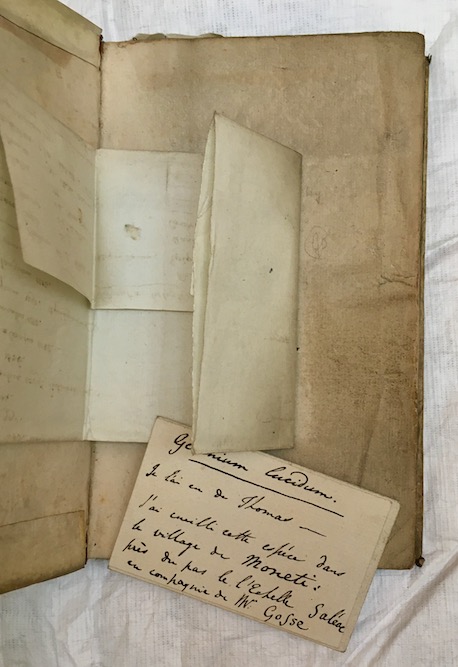 Geranium lucidum.
Je l'ai eu de Thomas —
J'ai cueilli cette espèce dans
le village de Moneti:
près du pas de l'Echelle Salève
en compagnie de Mr Gosse